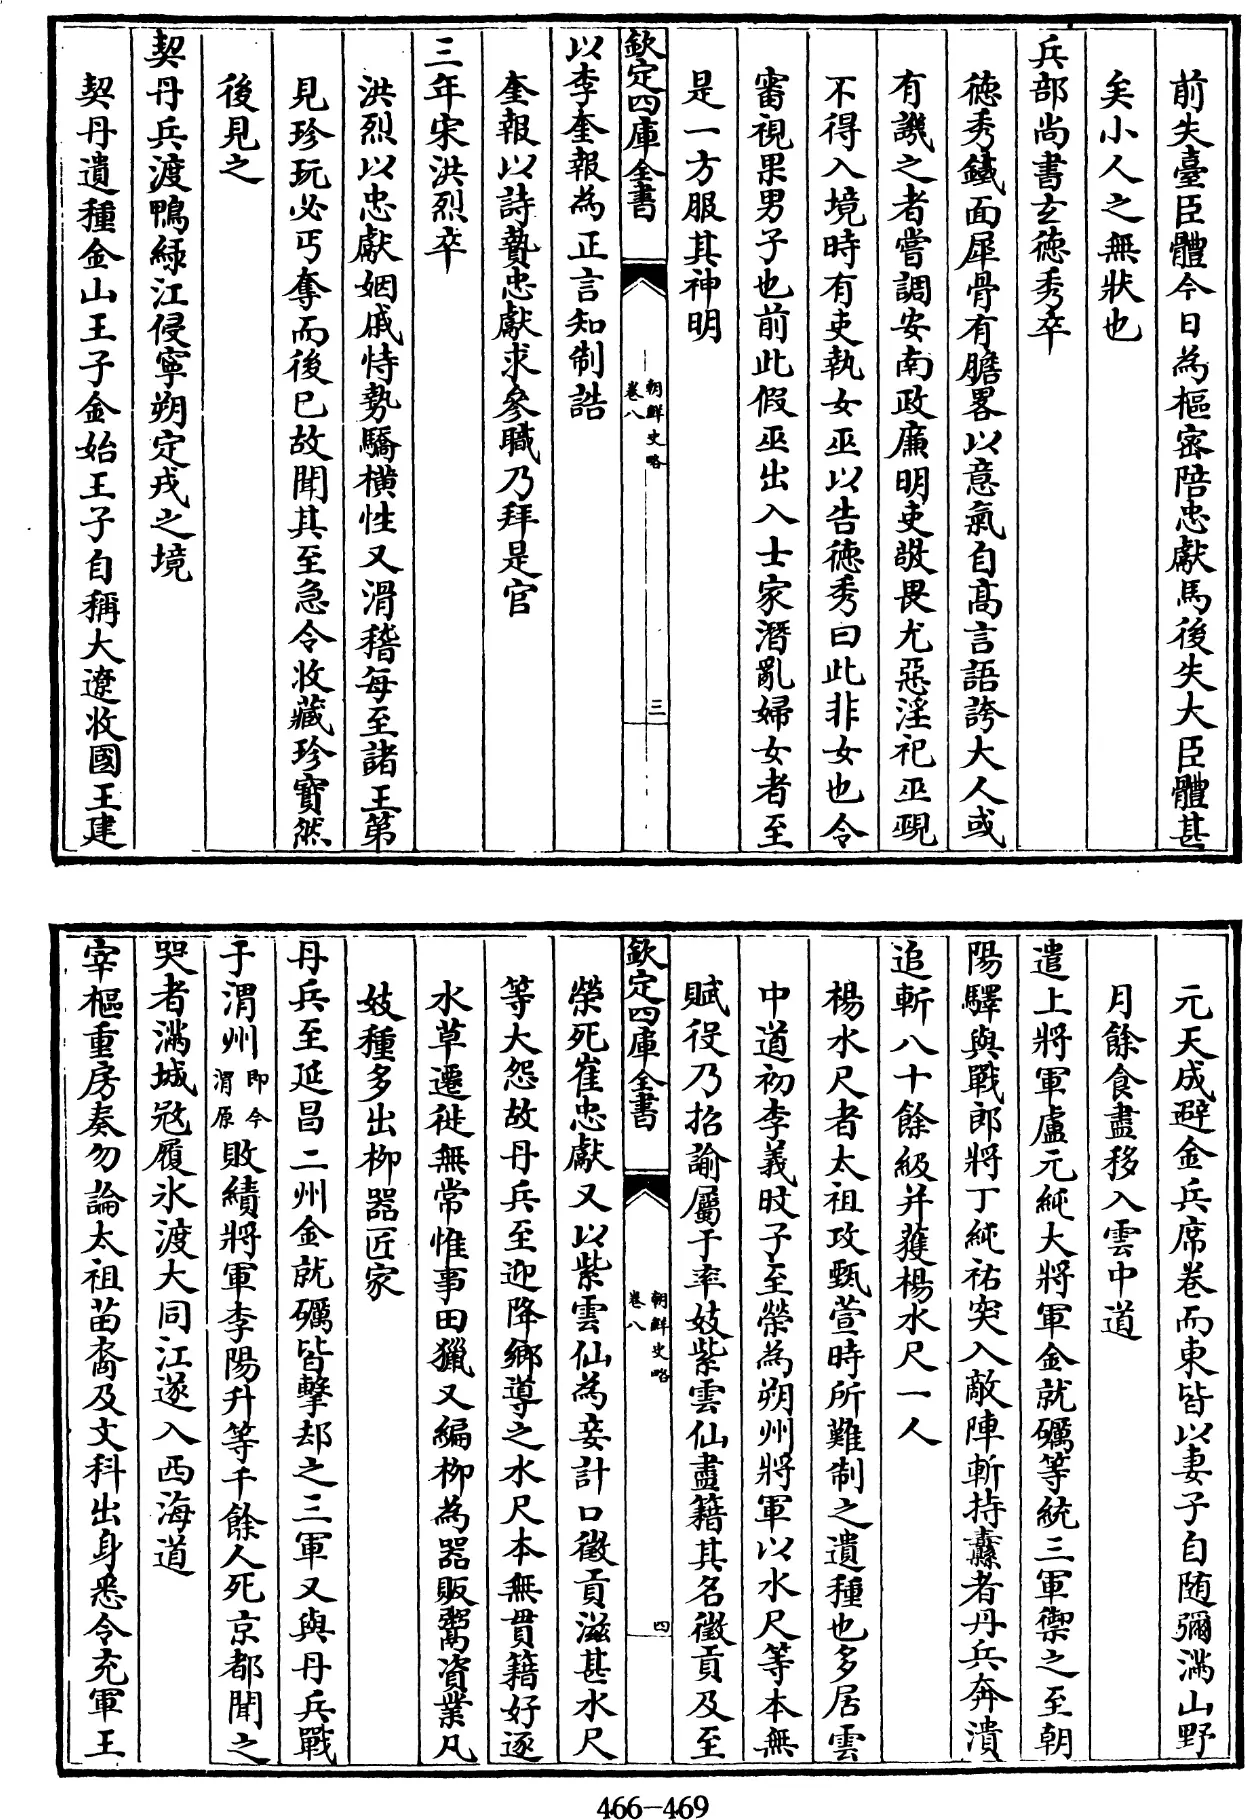 前失臺臣體今日為樞密陪忠獻馬後失大臣體甚
矣小人之無狀也
兵部尚書玄徳秀卒
徳秀鐵面犀骨有膽畧以意氣自髙言語誇大人或
有譏之者嘗調安南政廉明吏敬畏尤惡淫祀巫覡
不得入境時有吏執女巫以告徳秀曰此非女也令
審視果男子也前此假巫出入士家潛亂婦女者至
是一方服其神明
欽定四庫全書
朝鮮史略
卷八
三
以李奎報為正言知制誥
奎報以詩贄忠獻求參職乃拜是官
三年宋洪烈卒
洪烈以忠獻姻戚恃勢驕橫性又滑稽每至諸王第
見珍玩必丐奪而後已故聞其至急令收藏珍寶然
後見之
契丹兵渡鴨緑江侵寧朔定戎之境
契丹遺種金山王子金始王子自稱大遼收國王建
元天成避金兵席卷而東皆以妻子自随彌滿山野
月餘食盡移入雲中道
遣上將軍盧元純大將軍金就礪等統三軍禦之至朝
陽驛與戰郎將丁純祐突入敵陣斬持纛者丹兵奔潰
追斬八十餘級并獲楊水尺一人
楊水尺者太祖攻甄萱時所難制之遺種也多居雲
中道初李義旼子至榮為朔州將軍以水尺等本無
賦役乃招諭屬于率妓紫雲仙盡籍其名徵貢及至
欽定四庫全書
朝鮮史略
卷八
四
榮死崔忠獻又以紫雲仙為妾計口徵貢滋甚水尺
等大怨故丹兵至迎降鄉導之水尺本無貫籍好逐
水草遷徙無常惟事田獵又編柳為器販鬻資業凡
妓種多出柳器匠家
丹兵至延昌二州金就礪皆擊却之三軍又與丹兵戰
于渭州即今渭原敗績將軍李陽升等千餘人死京都聞之
哭者滿城冦履氷渡大同江遂入西海道
宰樞重房奏勿論太祖苗裔及文科出身悉令充軍王
466-469